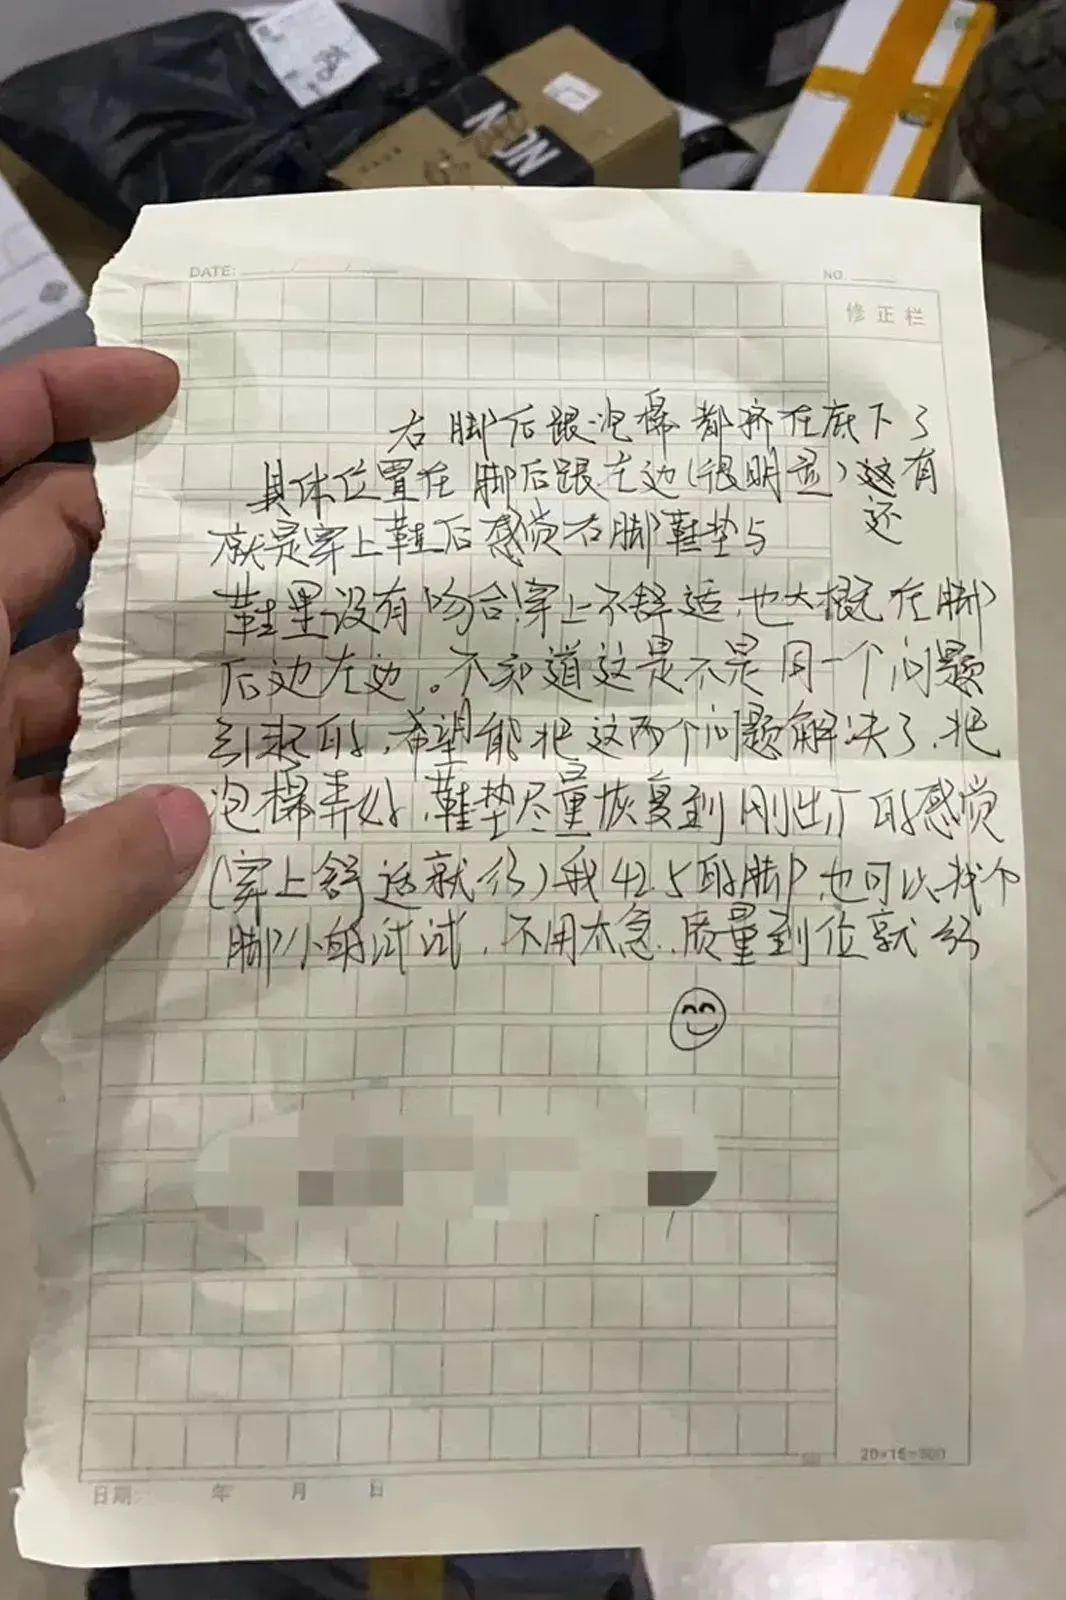 DATE: / /
NO
修正栏
右脚后跟泡棉都挤在底下了
具体位置在脚后跟左边(很明显)这有
还
就是穿上鞋后感觉右脚鞋垫与
鞋里没有吻合!穿上不舒适,也大概在脚
后边左边。不知道这是不是同一个问题
引起的,希望能把这两个问题解决了,把
泡棉弄好,鞋垫尽量恢复到刚出厂的感觉
(穿上舒适就行)我42.5的脚,也可以找个
脚小的试试,不用太急,质量到位就行
20×15=300
日期 年 月 日